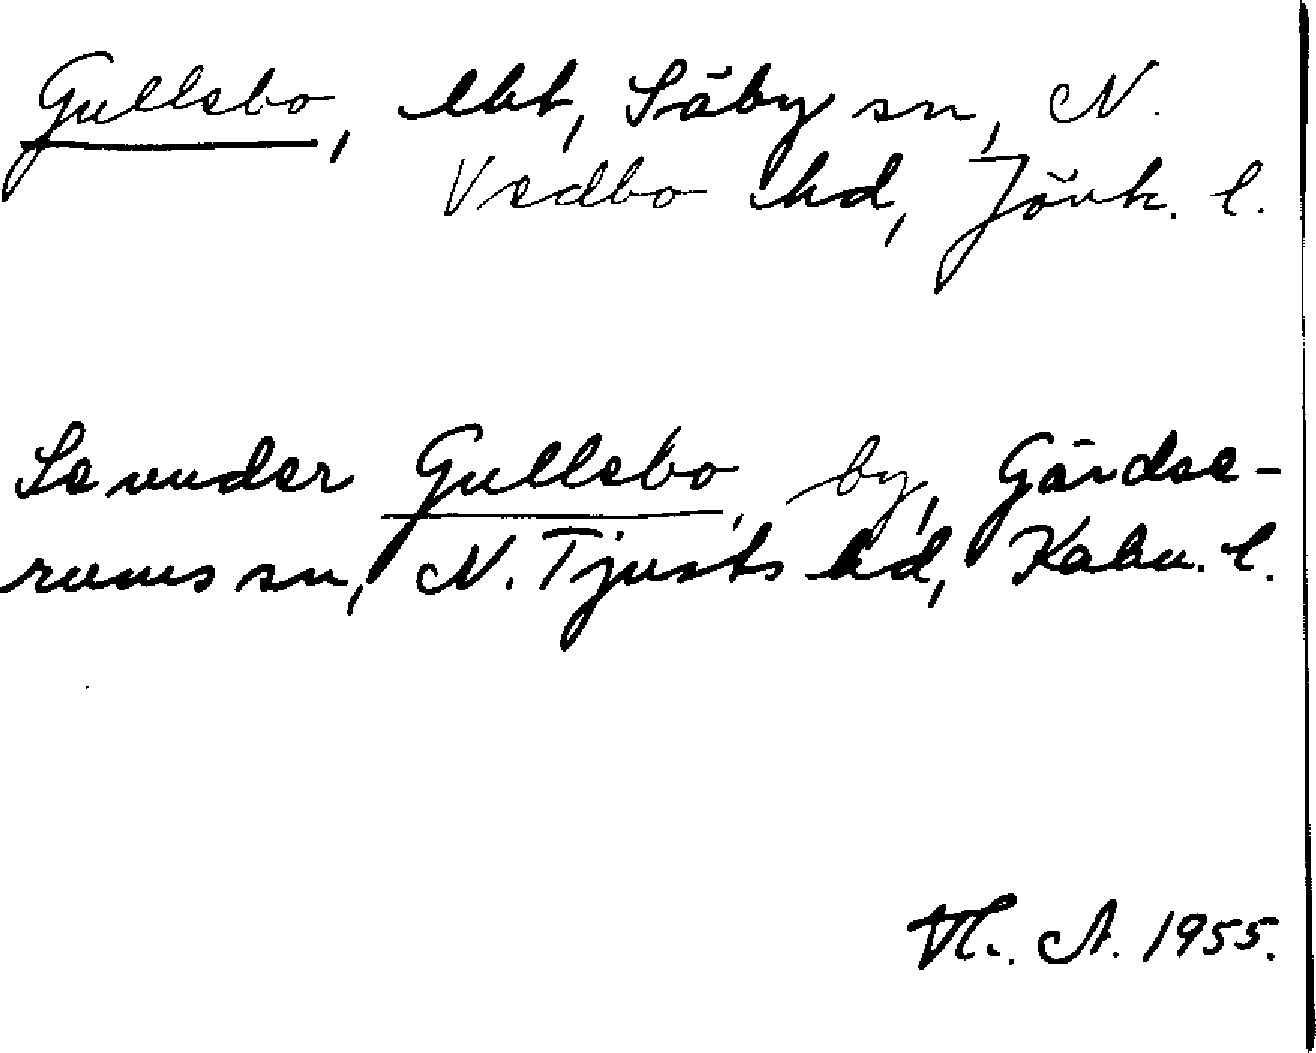 Gullebo, lht, Säby sn, N.
Vedbo hd, Jönk. l.
Se under Gullebo, by, Gärdse-
rums sn, N. Tjusts hd, Kalm. l.
Th. A. 1955.